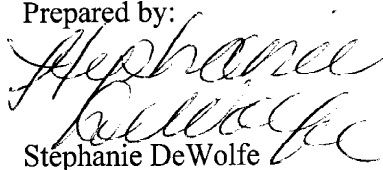 Prepared by:
Stephanie
DeWolfe
Stephanie DeWolfe